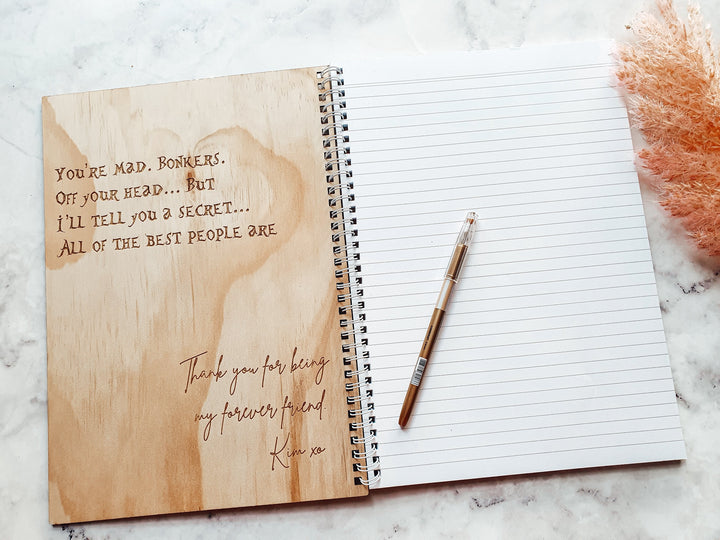 You're mad. Bonkers.
Off your head... But
I'll tell you a secret...
All of the best people are
Thank you for being
my forever friend.
Kim xo